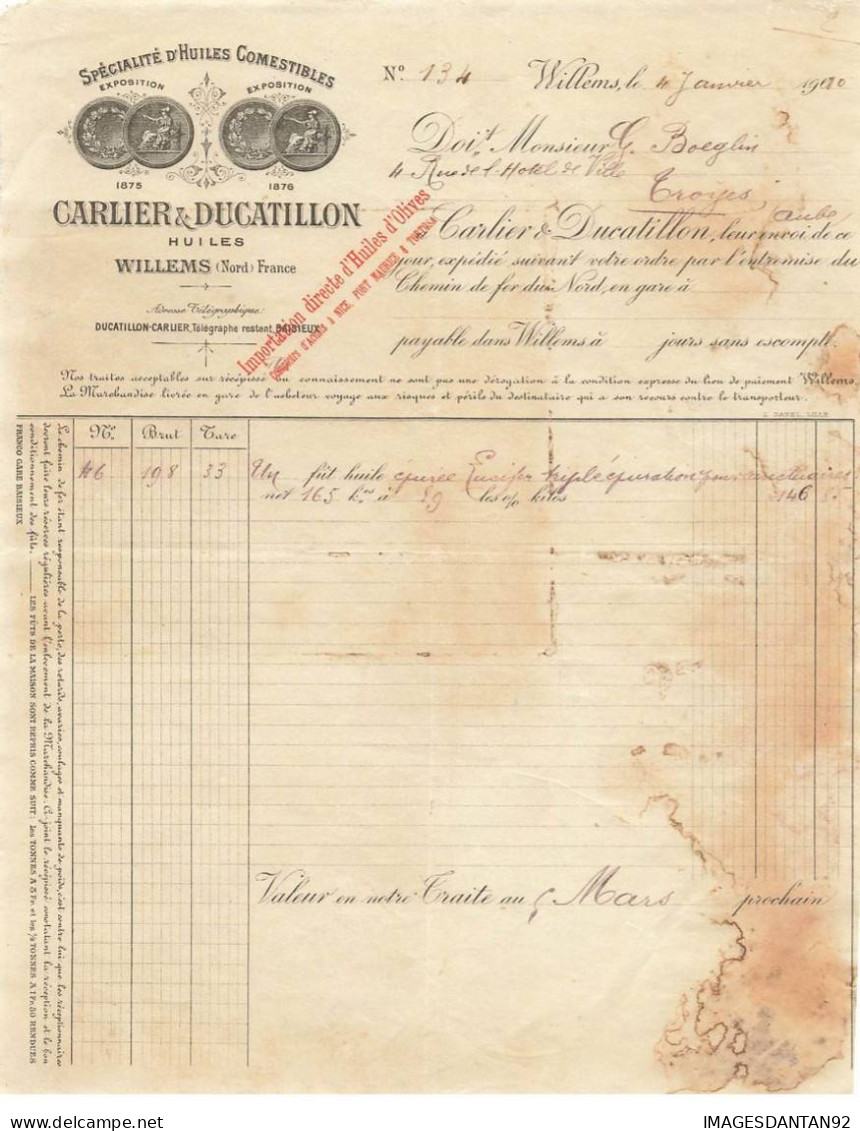 SPÉCIALITÉ D'HUILES COMESTIBLES
EXPOSITION EXPOSITION
1875 1876
CARLIER & DUCATILLON
HUILES
WILLEMS (Nord) France
Adresse Télégraphique:
DUCATILLON-CARLIER, Télégraphe restant, BAISIEUX
Importation directe d'Huiles d'Olives
Comptoirs d'Achats à NICE, PORT MAURICE & TORTOSA
N° 134 Willems, le 4 Janvier 1900
Doit Monsieur G. Boeglin
4 Rue de l'Hotel de Ville
Troyes
Aube
à Carlier & Ducatillon, leur envoi de ce
jour, expédié suivant votre ordre par l'entremise du
Chemin de fer du Nord, en gare à
payable dans Willems à jours sans escompte.
Nos traites acceptables sur récépissé ou connaissement ne sont pas une dérogation à la condition expresse du lieu de paiement Willems.
La Marchandise livrée en gare de l'acheteur voyage aux risques et périls du destinataire qui a son recours contre le transporteur.
L. DANEL, LILLE
N° Brut Tare
46 198 33 Un fût huile épurée triple épuration pour sanctuaires
net 165 kos à 89 les % kilos 146 85
Valeur en notre Traite au 5 Mars prochain
Le chemin de fer étant responsable de la perte, des retards, avaries, coulages et manquants de poids, c'est contre lui que les réceptionnaires
devront faire leurs réserves régulières avant l'enlèvement de la Marchandise. Ci-joint le récépissé constatant la réception et le bon
conditionnement des fûts. LES FÛTS DE LA MAISON SONT REPRIS COMME SUIT: les TONNES A 3 Fr. et les ½ TONNES A 1 Fr. 50 RENDUES
FRANCO GARE BAISIEUX
IMAGESDANTAN92